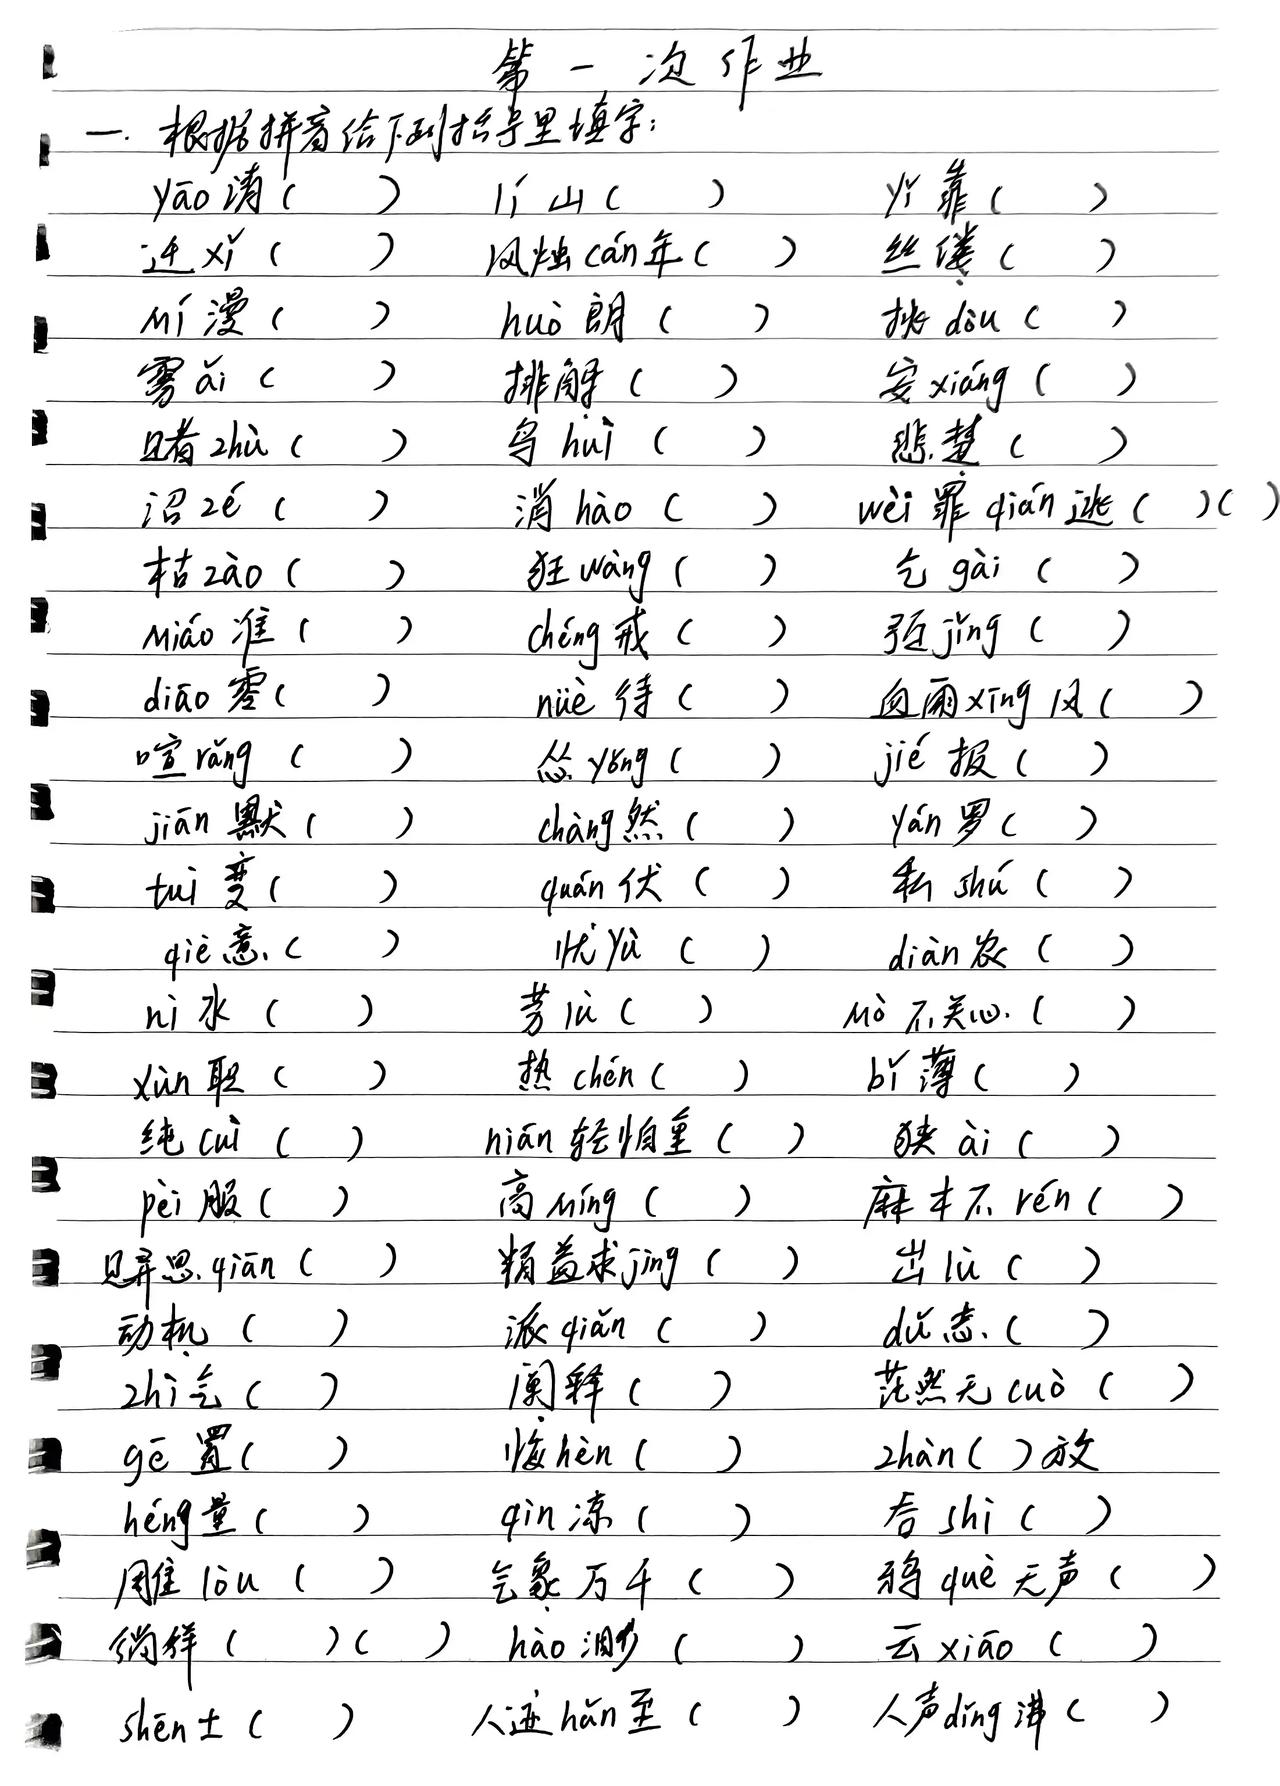 第一次作业
一. 根据拼音给下列括号里填字:
yāo 请 (    ) lí 山 (    ) yǐ 靠 (    )
迁 xǐ (    ) 风烛 cán 年 (    ) 丝缕 (    )
mí 漫 (    ) huò 朗 (    ) 挑 dòu (    )
雾 ǎi (    ) 排解 (    ) 安 xiáng (    )
赌 zhù (    ) 鸟 huì (    ) 悲楚 (    )
沼 zé (    ) 消 hào (    ) wèi 罪 qián 逃 (    )(    )
枯 zào (    ) 狂 wàng (    ) 乞 gài (    )
miáo 准 (    ) chéng 戒 (    ) 强 jìng (    )
diāo 零 (    ) nüè 待 (    ) 血雨 xīng 风 (    )
喧 rǎng (    ) 怂 yǒng (    ) jié 报 (    )
jiān 默 (    ) chàng 然 (    ) yán 罗 (    )
tuì 变 (    ) quán 伏 (    ) 私 shú (    )
qiè 意 (    ) 忧 yù (    ) diàn 农 (    )
nì 水 (    ) 劳 lù (    ) mò 不关心 (    )
xùn 职 (    ) 热 chén (    ) bǐ 薄 (    )
纯 cuì (    ) niān 轻怕重 (    ) 狭 ài (    )
pèi 服 (    ) 高 míng (    ) 麻木不 rén (    )
见异思 qiān (    ) 精益求 jīng (    ) 出 lù (    )
动机 (    ) 派 qiǎn (    ) dǔ 志 (    )
zhì 气 (    ) 阐释 (    ) 茫然无 cuò (    )
gē 置 (    ) 悔 hèn (    ) zhàn (    ) 放
héng 量 (    ) qìn 凉 (    ) 吞 shì (    )
雕 lòu (    ) 气象万千 (    ) 鸦 què 无声 (    )
徜徉 (    )(    ) hào 渺 (    ) 云 xiāo (    )
shēn 士 (    ) 人迹 hǎn 至 (    ) 人声 dǐng 沸 (    )